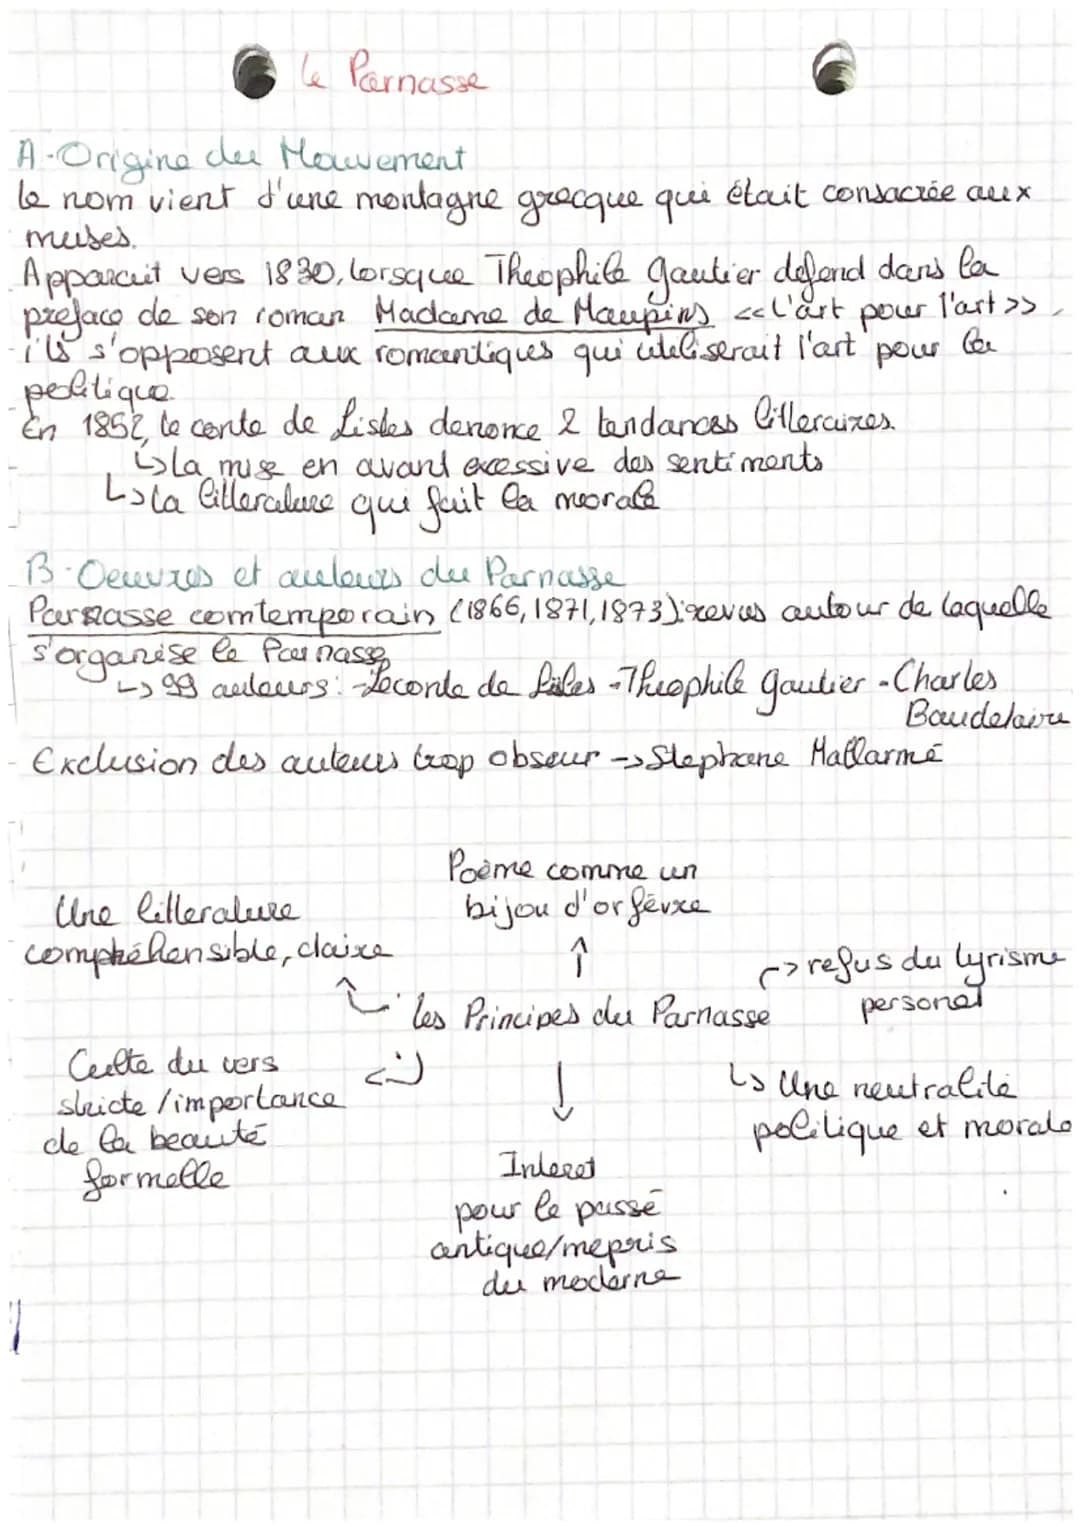 Le Parnasse
A - Origine du Mouvement
Le nom vient d'une montagne grecque qui était consacrée aux
muses.
Apparait vers 1830, lorsque Theophile Gautier defend dans la
preface de son roman Madame de Maupins <<l'art pour l'art>>,
ils s'opposent aux romantiques qui utiliserait l'art pour la
politique.
En 1852, le conte de Lisles denonce 2 tendances litteraires.
↳ la mise en avant excessive des sentiments
↳ la litterature qui fait la morale
B - Oeuvres et auteurs du Parnasse
Parnasse comtemporain (1866, 1871, 1873): revus autour de laquelle
s'organise le Parnasse
↳ 99 auteurs: - Leconte de Lisles - Theophile Gautier - Charles
Baudelaire
Exclusion des auteurs trop obscur -> Stephane Mallarmé
Poème comme un
bijou d'orfèvre
Une litterature
compréhensible, claire
-> refus du lyrisme
personel
les Principes du Parnasse
Culte du vers
stricte / importance
de la beauté
formelle
↳ Une neutralité
politique et morale
Interet
pour le passé
antique/mepris
du moderne